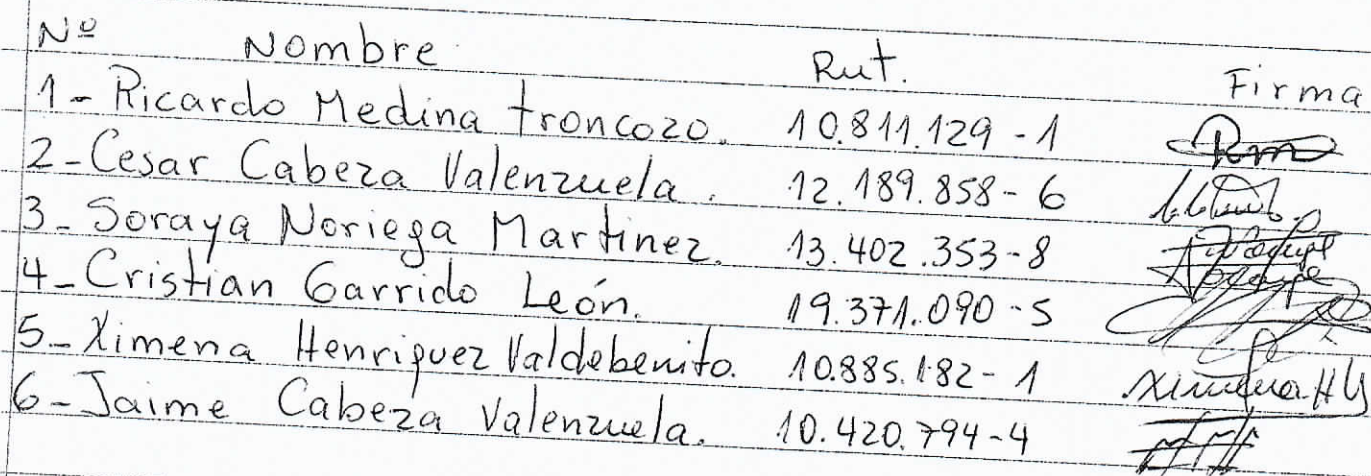 Nº Nombre Rut. Firma
1- Ricardo Medina troncozo. 10.811.129-1 Rm
2- Cesar Cabeza Valenzuela. 12.189.858-6
3- Soraya Noriega Martinez. 13.402.353-8
4- Cristian Garrido León. 19.371.090-5
5- Ximena Henriquez Valdebenito. 10.885.182-1 Ximena HV
6- Jaime Cabeza Valenzuela. 10.420.794-4